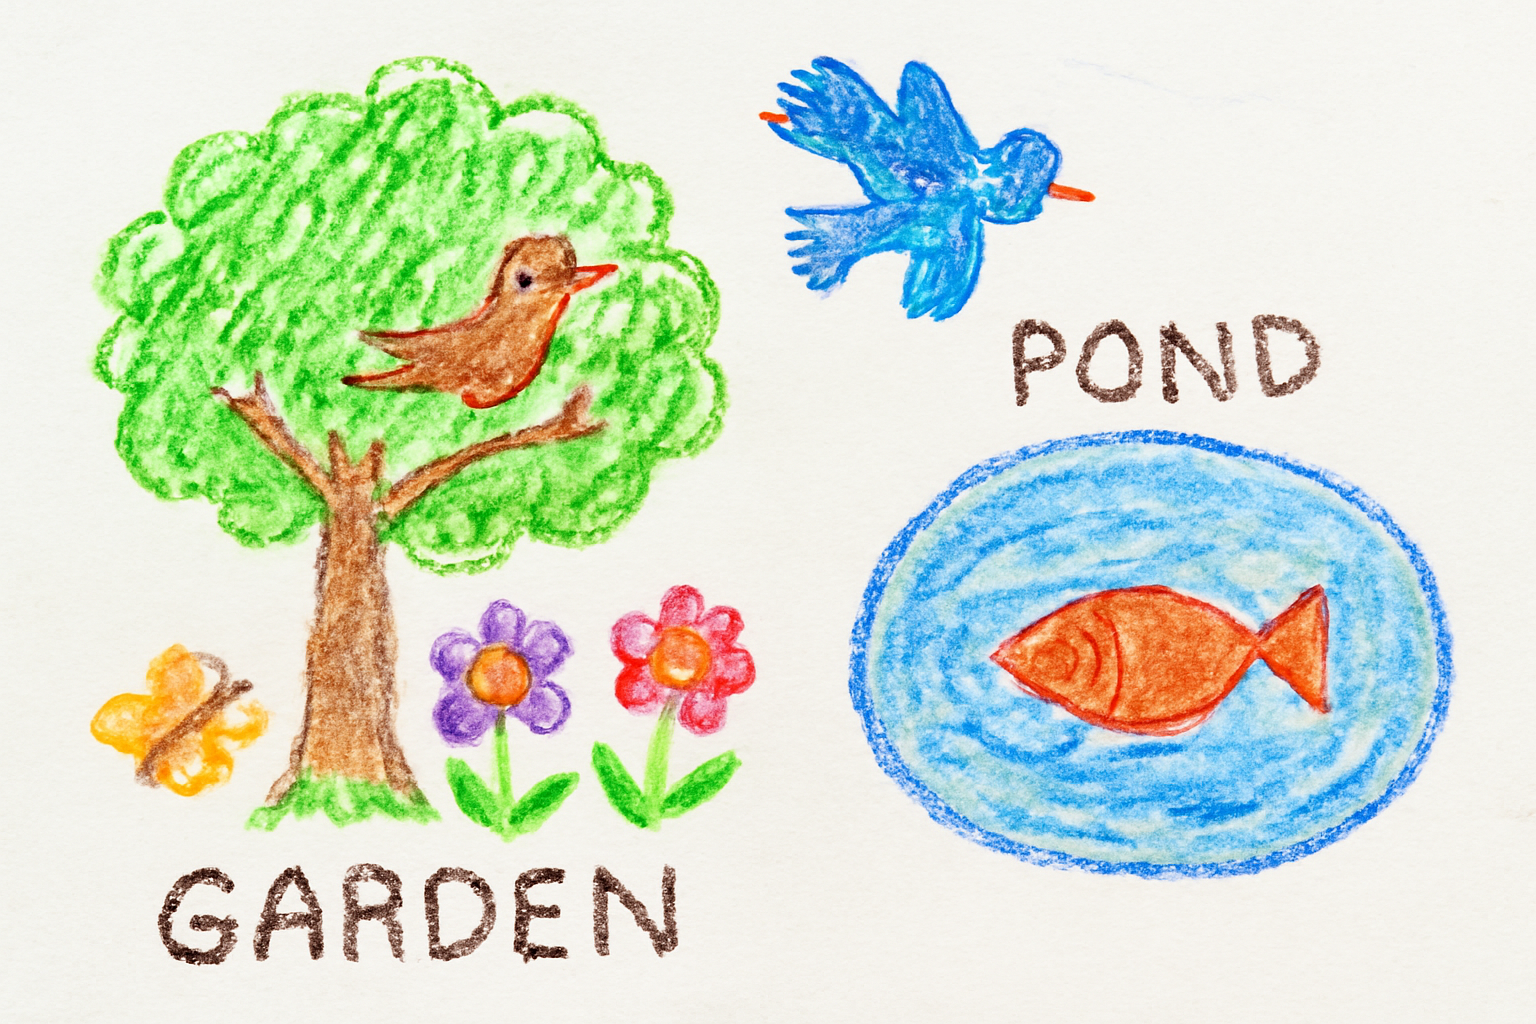 POND
GARDEN